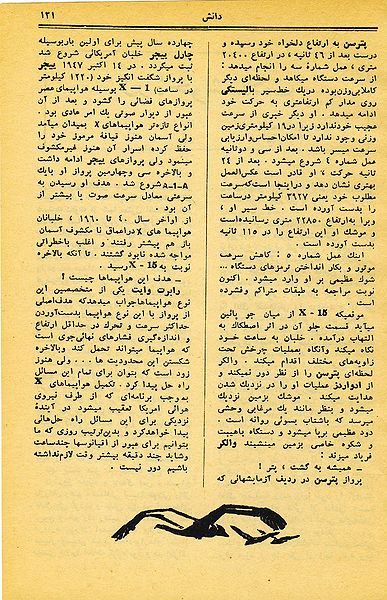 دانش
۱۲۱
پترسن به ارتفاع دلخواه خود رسیده و
درست بعد از ۴۶ ثانیه ، در ارتفاع ۲۰۴۰۰
متری ، عمل شمارهٔ سه را انجام میدهد :
سرعت دستگاه میکاهد و لحظه‌ای دیگر
کاملا بی‌وزن بوده دریك خط‌سیر بالیستکی
روی مدار کم ارتفاعتری به حرکت خود
ادامه میدهد . او دیگر خبری از سرعت
عجیب خودندارد زیرا در ۱۹ کیلومتری زمین
وزنی وجود ندارد تا امکان احساس وارزیابی
سرعت میسر باشد . بعد از سی و دو ثانیه
عمل شماره ۴ شروع میشود . بعد از ۲۴
ثانیه حرکت ، او قادر است عکس‌العمل
بهتری نشان دهد و در اینجا است که سرعت
مطلوب خود یعنی ۳۹۲۷ کیلومتر درساعت
را بدست آورده است . خط سیر او ،
ویرا به ارتفاع ۲۲۸۵۰ متری رسانیده است
و موشك او این ارتفاع را در ۱۱۵ ثانیه
بدست آورده است .
اینك عمل شماره ۵ : کاهش سرعت
موتور و بکار انداختن ترمزهای دستگاه ...
شوك عظیمی بر او وارد میشود . اکنون
نوبت مراجعه به طبقات متراکم وفشرده
است .
موقعیکه X - 15 از میان جو پائین
میآید قسمت جلو آن در اثر اصطکاك به
التهاب درآمده . خلبان به ساعت خود
نگاه میکند وآنگاه بعملیات چرخش تحت
زاویه‌های مختلف اقدام میکند . والکر
لحظه‌ای پترسن را از نظر دور نمیکند و
از ادواردز عملیات او را در نزدیك شدن
هدایت میکند . موشك بزمین نزدیك
میشود و بنظر مانند یك مرغابی وحشی
میرسد که باشتاب بسوئی روانه است .
دود عظیمی برپا میشود و دستگاه با اهمیت
و شکوه خاصی بزمین مینشیند والکر
فریاد میزند :
ـ همیشه به گشت ، پتر !
پرواز پترسن در ردیف آزمایشهائی که
چهارده سال پیش برای اولین بار بوسیله
چارل ییجر خلبان آمریکائی شروع شد
ثبت میگردد . در ۱۴ اکتبر ۱۹۴۷ ییجر
با پرواز شگفت انگیز خود (۱۲۲۰ کیلومتر
در ساعت) X — 1 بوسیله هواپیما عصر
پروازهای فضائی را گشود و بعد از آن
عبور از دیوار صوتی یك امر عادی بود .
انواع تازه‌تر هواپیماهای X بمیدان میآمد
ولی آسمان هنوز قیافهٔ مرموز خود را
حفظ کرده اسرار آن هنوز غیرمکشوف
مینمود ولی پروازهای ییجر ادامه داشت
و بالاخره سی وچهارمین پرواز او بایك
A-1-A شروع شد . هدف او رسیدن به
سرعتی معادل سرعت صوت یا بیشتر از
آن بود .
از اواخر سال ۴۰ تا ۱۹۶۰ ، خلبانان
هواپیما های X در اعماق نا مکشوف آسمان
باز هم پیشتر رفتند و اغلب باخطراتی
مواجه شده نابود گشتند . تا آنکه بالاخره
نوبت به X - 15 رسید .
ـ هدف این هواپیماها چیست ؟
رابرت وایت یکی از متخصصین این
نوع هواپیماها جواب میدهد که هدف اصلی
از پرواز با این نوع هواپیما بدست‌آوردن
حداکثر سرعت و تحرك در حداقل ارتفاع
و اندازه‌گیری فشارهای نهائی جوی است
که هواپیما میتواند تحمل کند وبالاخره
شکستن این محدودیت ها ... ولی هنوز
زود است که بتوان برای تمام این مسائل
راه حل پیدا کرد . تکمیل هواپیماهای X
بموجب برنامه‌ای که از طرف نیروی
هوائی امریکا تعقیب میشود در آیندهٔ
نزدیکی برای این مسائل راه حل‌هائی
پیدا خواهد کرد و بدین ترتیب روزی که ما
بتوانیم برای عبور از اقیانوسها چند ساعت
وشاید چند دقیقه بیشتر وقت لازم نداشته
باشیم دور نیست .